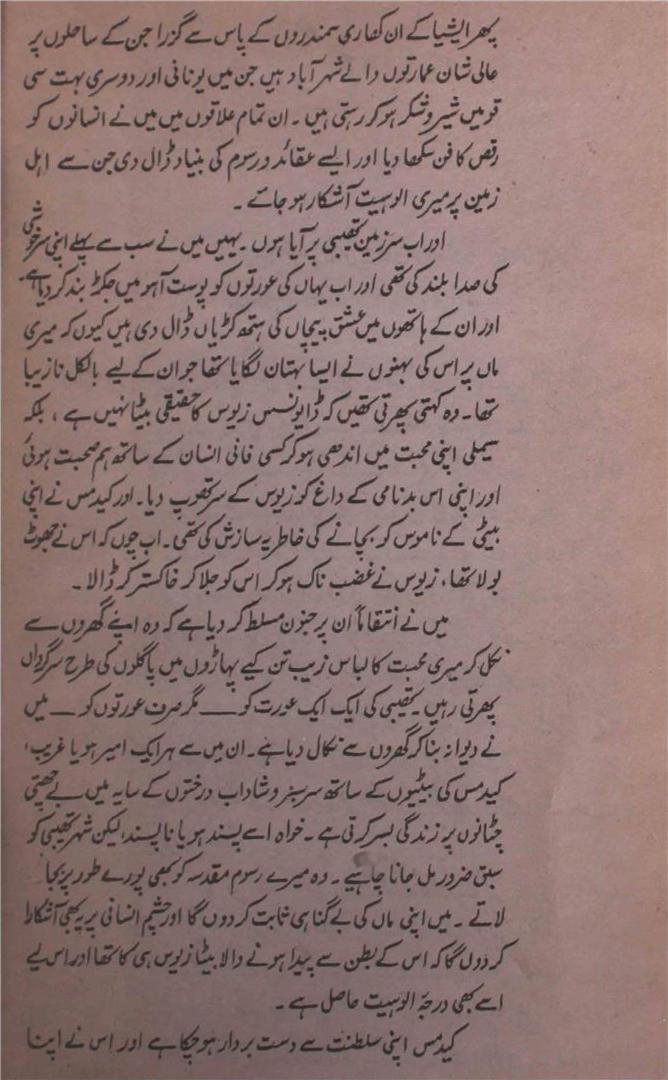 پھر ایشیا کے ان کفاری سمندروں کے پاس سے گزرا جن کے ساحلوں پر
عالی شان عمارتوں والے شہر آباد ہیں جن میں یونانی اور دوسری بہت سی
قومیں شیر و شکر ہو کر رہتی ہیں ۔ ان تمام علاقوں میں میں نے انسانوں کو
رقص کا فن سکھا دیا اور ایسے عقائد و رسوم کی بنیاد ڈال دی جن سے اہل
زمین پر میری الوہیت آشکار ہو جائے ۔
اور اب سرزمین تھیبی پر آیا ہوں ۔ یہیں میں نے سب سے پہلے اپنی سرخوشی
کی صدا بلند کی تھی اور اب یہاں کی عورتوں کو پوست آہو میں جکڑ بند کر دیا ہے۔
اور ان کے ہاتھوں میں عشق پیچاں کی ہتھ کڑیاں ڈال دی ہیں کیوں کہ میری
ماں پر اس کی بہنوں نے ایسا بہتان لگایا تھا جو ان کے لیے بالکل نازیبا
تھا ۔ وہ کہتی پھرتی تھیں کہ ڈایونسس زیوس کا حقیقی بیٹا نہیں ہے ، بلکہ
سیملی اپنی محبت میں اندھی ہو کر کسی فانی انسان کے ساتھ ہم صحبت ہوئی
اور اپنی اس بدنامی کے داغ کو زیوس کے سر تھوپ دیا ۔ اور کیدمس نے اپنی
بیٹی کے ناموس کو بچانے کی خاطر یہ سازش کی تھی ۔ اب چوں کہ اس نے جھوٹ
بولا تھا ، زیوس نے غضب ناک ہو کر اس کو جلا کر خاکستر کر ڈالا ۔
میں نے انتقاماً ان پر جنون مسلط کر دیا ہے کہ وہ اپنے گھروں سے
نکل کر میری محبت کا لباس زیب تن کیے پہاڑوں میں پاگلوں کی طرح سرگرداں
پھرتی رہیں ۔ تھیبی کی ایک ایک عورت کو ــــ مگر صرف عورتوں کو ــــ میں
نے دیوانہ بنا کر گھروں سے نکال دیا ہے ۔ ان میں سے ہر ایک امیر ہو یا غریب ،
کیدمس کی بیٹیوں کے ساتھ سرسبز و شاداب درختوں کے سایہ میں بے چھتی
چٹانوں پر زندگی بسر کرتی ہے ۔ خواہ اسے پسند ہو یا ناپسند، لیکن شہر تھیبی کو
سبق ضرور مل جانا چاہیے ۔ وہ میرے رسوم مقدسہ کو بھی پورے طور پر بجا
لاتے ۔ میں اپنی ماں کی بے گناہی ثابت کر دوں گا اور چشم انسانی پر یہ بھی آشکارا
کر دوں گا کہ اس کے بطن سے پیدا ہونے والا بیٹا زیوس ہی کا تھا اور اس لیے
اسے بھی درجۂ الوہیت حاصل ہے ۔
کیدمس اپنی سلطنت سے دست بردار ہو چکا ہے اور اس نے اپنا